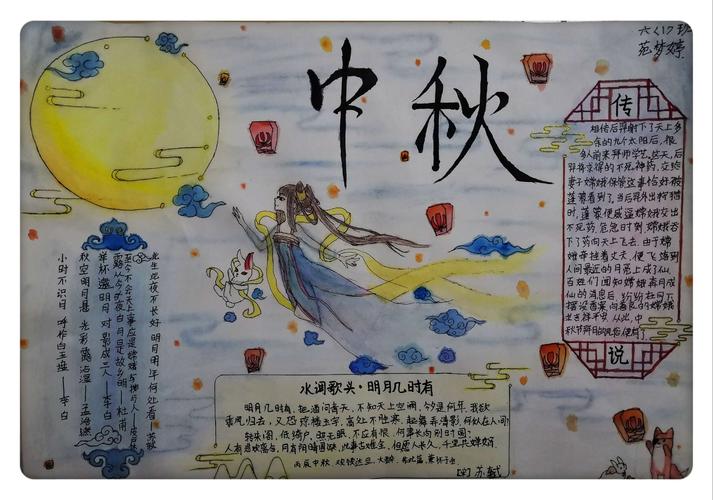 中秋
六(1)班
梦婷
此生此夜不长好 明月明年何处看——苏轼
至今不会天上事 应是嫦娥与人——皮日休
露从今夜白 月是故乡明——杜甫
举杯邀明月 对影成三人——李白
秋空明月悬 光彩露沾湿——孟浩然
小时不识月 呼作白玉盘——李白
传
相传后羿射下了天上多
余的九个太阳后，很
多人前来拜师学艺。这天，后
羿将交得的不死神药，交给
妻子嫦娥保管这事恰好被
蓬蒙看到了，当后羿外出狩猎
时，蓬蒙便威逼嫦娥交出
不死药，危急时刻，嫦娥吞
了药向天上飞去。由于嫦
娥牵挂丈夫，便飞落到
人间最近的月亮上成了仙。
百姓们闻知嫦娥奔月成
仙的消息后，纷纷在月下
摆设香案向善良的嫦娥
吉祥平安，从此，中
秋节拜月的风俗便有了
说
水调歌头·明月几时有
明月几时有，把酒问青天，不知天上宫阙，今夕是何年，我欲
乘风归去，又恐琼楼玉宇，高处不胜寒，起舞弄清影，何似在人间
转朱阁，低绮户，照无眠，不应有恨，何事长向别时圆？
人有悲欢离合，月有阴晴圆缺，此事古难全，但愿人长久，千里共婵娟。
丙辰中秋，欢饮达旦，大醉，作此篇，兼怀子由
[宋]苏轼